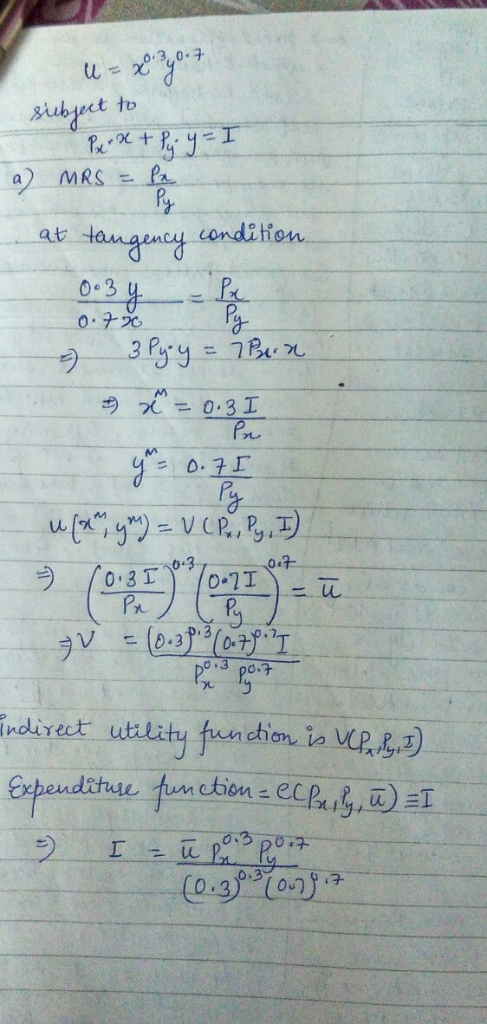 u = x^0.3 y^0.7
subject to
Px·x + Py·y = I
a) MRS = Px/Py
at tangency condition
0.3 y / 0.7 x = Px/Py
⇒ 3 Py·y = 7 Px·x
⇒ x^m = 0.3 I / Px
y^m = 0.7 I / Py
u(x^m, y^m) = V(Px, Py, I)
⇒ (0.3 I / Px)^0.3 (0.7 I / Py)^0.7 = ū
⇒ V = (0.3)^0.3 (0.7)^0.7 I / Px^0.3 Py^0.7
Indirect utility function is V(Px, Py, I)
Expenditure function = e(Px, Py, ū) ≡ I
⇒ I = ū Px^0.3 Py^0.7 / (0.3)^0.3 (0.7)^0.7